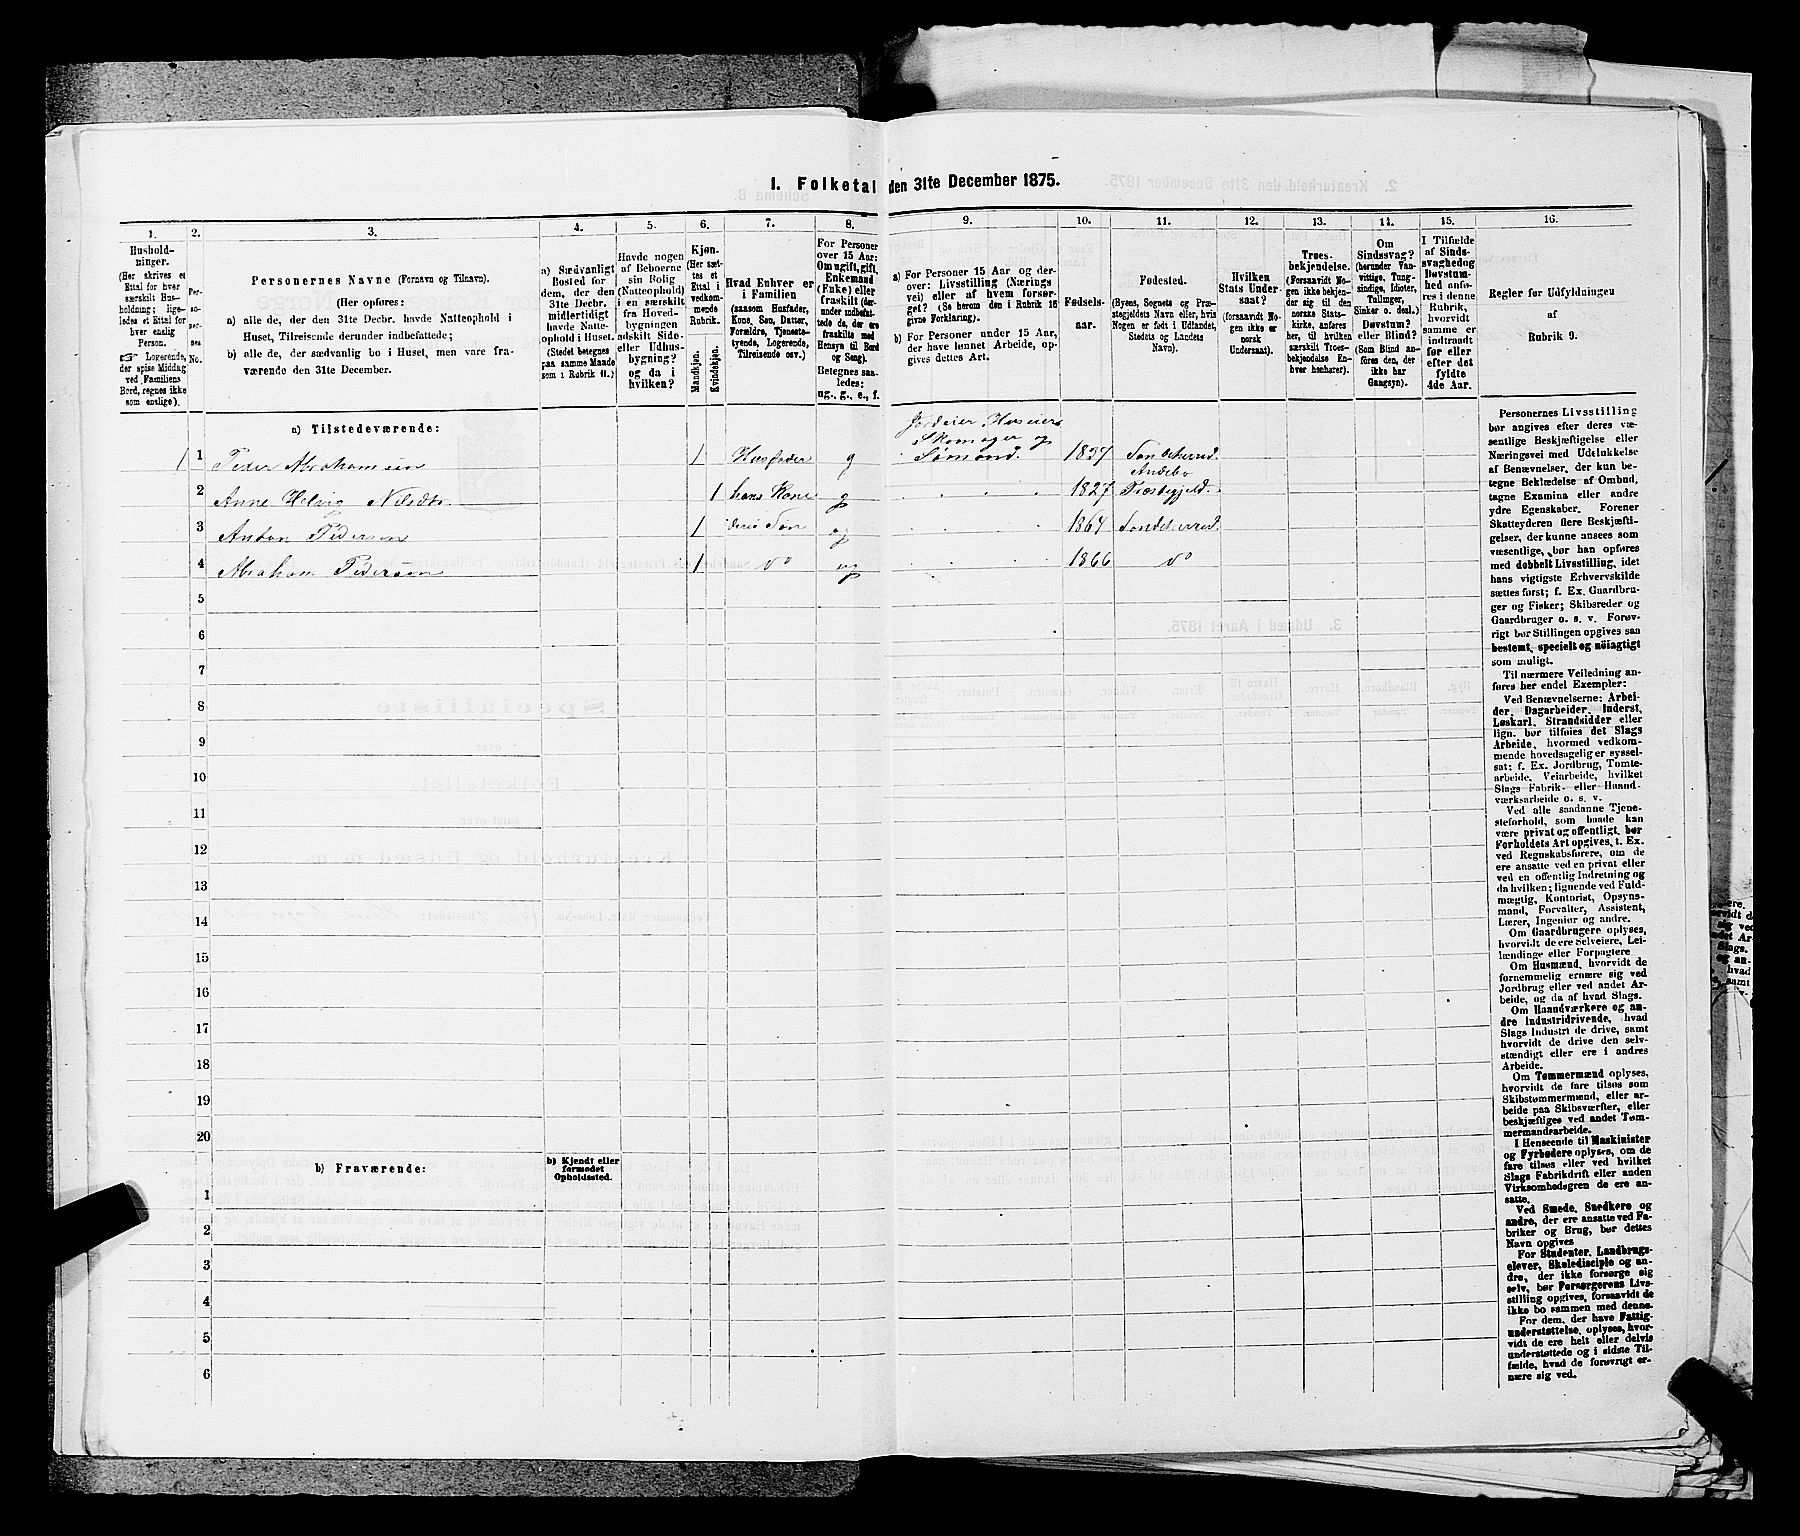 1. Folketal den 31te December 1875.
1.
Hushold-
ninger.
(Her skrives et
Ettal for hver
særskilt Hus-
holdning; lige-
ledes et Ettal for
hver enslig
Person.
Logerende,
der spise Middag
ved Familiens
Bord, regnes ikke
som enslige).
2.
Per-
so-
ner-
nes
No.
3.
Personernes Navne (Fornavn og Tilnavn).
(Her opføres:
a) alle de, der den 31te Decbr. havde Natteophold i
Huset, Tilreisende derunder indbefattede;
b) alle de, der sædvanlig bo i Huset, men vare fra-
værende den 31te December.
4.
a) Sædvanligt
Bosted for
dem, der den
31te Decbr.
midlertidigt
havde Natte-
ophold i Huset.
(Stedet betegnes
paa samme Maade
som i Rubrik 11.)
5.
Havde nogen
af Beboerne
sin Bolig
(Natteophold)
i en særskilt
fra Hoved-
bygningen
adskilt Side-
eller Udhus-
bygning?
og da i
hvilken?
6.
Kjøn.
(Her sæt-
tes et
Ettal i
vedkom-
mende
Rubrik.
Mandkjøn.
Kvindekjøn.
7.
Hvad Enhver er
i Familien
(saasom Husfader,
Kone, Søn, Datter,
Forældre, Tjeneste-
tyende, Logerende,
Tilreisende osv.)
8.
For Personer
over 15 Aar:
Om ugift, gift,
Enkemand
(Enke) eller
fraskilt (der-
under indbefat-
tede de, der ere
fraskilte med
Hensyn til Bord
og Seng).
Betegnes saa-
ledes:
ug., g., e., f.
9.
a) For Personer 15 Aar og der-
over: Livsstilling (Nærings
vei) eller af hvem forsør-
get? (Se herom den i Rubrik 16
givne Forklaring).
b) For Personer under 15 Aar,
der have lønnet Arbeide, op-
gives dettes Art.
10.
Fødsels-
aar.
11.
Fødested.
(Byens, Sognets og Præ-
stegjeldets Navn eller, hvis
Nogen er født i Udlandet,
Stedets og Landets
Navn).
12.
Hvilken
Stats Under-
saat?
(forsaavidt No-
gen ikke er
norsk
Undersaat).
13.
Troes-
bekjendelse.
(Forsaavidt No-
gen ikke bekjen-
der sig til den
norske Stats-
kirke, anføres
her, til hvilken
særskilt Troes-
bekjendelse En-
hver henhører).
14.
Om
Sindssvag?
(herunder Van-
vittige, Tung-
sindige, Idioter,
Tullinger,
Sinker o. desl.)
Døvstum?
eller Blind?
(Som Blind an-
føres den, der
ikke har
Gangsyn).
15.
I Tilfælde
af Sinds-
svaghed og
Døvstum-
hed anfø-
res i denne
Rubrik,
hvorvidt
samme er
indtraadt
før eller
efter det
fyldte
4de Aar.
16.
Regler for Udfyldningen
af
Rubrik 9.
a) Tilstedeværende:
Jordeier Huseier
Skomager og
1 1 Peder Abrahamsen 1 Husfader g Sømand. 1837 Sandeherred.
Andebo
2 Anne Helvig Nilsdtr 1 hans Kone g 1827 Præstegjeld.
3 Anton Pedersen 1 deres Søn ug 1864 Sandeherred.
4 Abraham Pedersen 1 do ug 1866 do
5
6
7
8
9
10
11
12
13
14
15
16
17
18
19
20
b) Fraværende:
b) Kjendt eller
formodet
Opholdssted.
1
2
3
4
5
6
Personernes Livsstilling
bør angives efter deres væ-
sentlige Beskjæftigelse eller
Næringsvei med Udelukkelse
af Benævnelser, der kun be-
tegne Beklædelse af Ombud,
tagne Examina eller andre
ydre Egenskaber. Forener
Skatteyderen flere Beskjæfti-
gelser, der kunne ansees som
væsentlige, bør han opføres
med dobbelt Livsstilling, idet
hans vigtigste Erhvervskilde
sættes først; f. Ex. Gaardbru-
ger og Fisker; Skibsreder og
Gaardbruger o. s. v. Forøv-
rigt bør Stillingen opgives saa
bestemt, specielt og nøiagtigt
som muligt.
Til nærmere Veiledning an-
føres her endel Exempler:
Ved Benævnelserne: Arbei-
der, Dagarbeider, Inderst,
Løskarl, Strandsidder eller
lign. bør tilføies det Slags
Arbeide, hvormed vedkom-
mende hovedsagelig er syssel-
sat; f. Ex. Jordbrug, Tomte-
arbeide, Veiarbeide, hvilket
Slags Fabrik- eller Haand-
værksarbeide o. s. v.
Ved alle saadanne Tjene-
steforhold, som baade kan
være privat og offentligt, bør
Forholdets Art opgives, t. Ex.
ved Regnskabsførere, om de
ere ansatte ved en privat eller
ved en offentlig Indretning og
da hvilken; lignende ved Fuld-
mægtig, Kontorist, Opsyns-
mand, Forvalter, Assistent,
Lærer, Ingeniør og andre.
Om Gaardbrugere oplyses,
hvorvidt de ere Selveiere, Lei-
lændinge eller Forpagtere
Om Husmænd, hvorvidt de
fornemmelig ernære sig ved
Jordbrug eller ved andet Ar-
beide, og da af hvad Slags.
Om Haandværkere og an-
dre Industridrivende, hvad
Slags Industri de drive, samt
hvorvidt de drive den selv-
stændigt eller ere i andres
Arbeide.
Om Tømmermænd oplyses,
hvorvidt de fare tilsøs som
Skibstømmermænd, eller ar-
beide paa Skibsværfter, eller
beskjæftiges ved andet Tøm-
mermandsarbeide.
I Henseende til Maskinister
og Fyrbødere oplyses, om de
fare tilsøs eller ved hvilket
Slags Fabrikdrift eller anden
Virksomhedsgren de ere an-
satte.
Ved Smede, Snedkere og
andre, der ere ansatte ved Fa-
briker og Brug, bør dettes
Navn opgives
For Studenter, Landbrugs-
elever, Skoledisciple og an-
dre, der ikke forsørge sig
selv, bør Forsørgerens Livs-
stilling opgives, forsaavidt de
ikke bo sammen med denne.
For dem, der have Fattig-
understøttelse, oplyses, hvor-
vidt de ere helt eller delvis
understøttede og i sidste Til-
fælde, hvad de forøvrigt er-
nære sig ved.